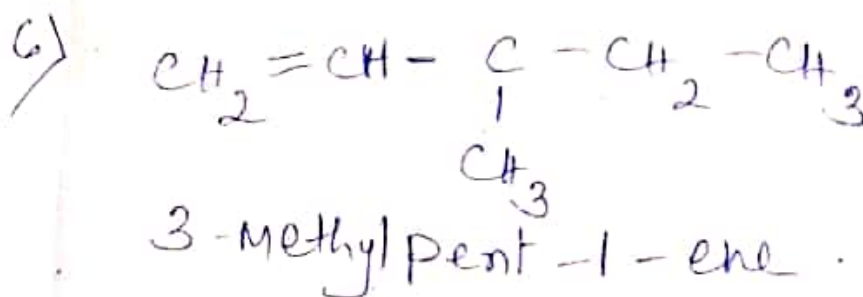 6) CH₂=CH- C -CH₂-CH₃
|
CH₃
3-Methyl pent-1-ene.